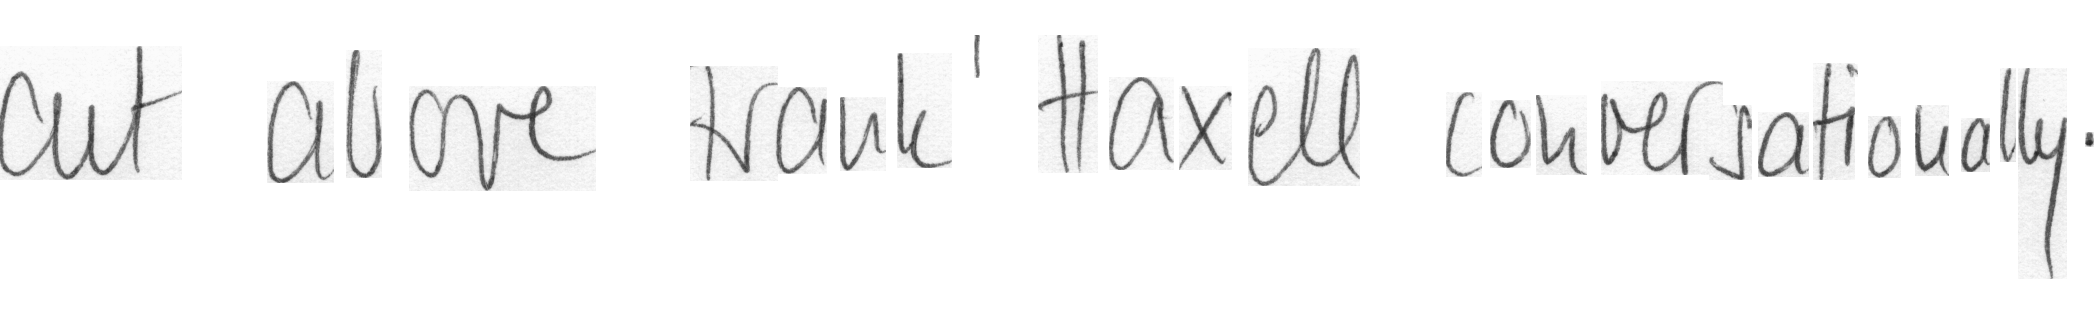 cut above Frank ' Haxell conversationally.